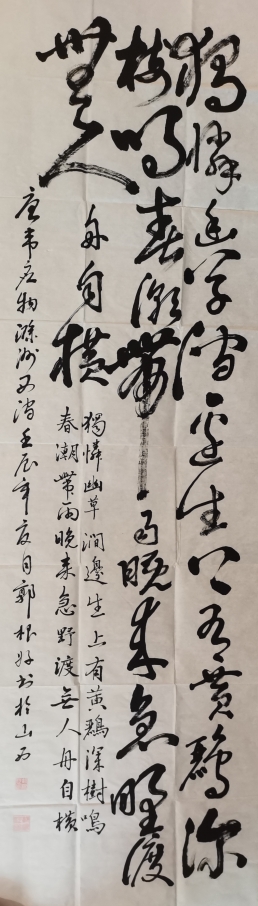 獨憐幽草澗邊生上有黃鸝深
樹鳴春潮帶雨晚來急野渡
無人舟自橫
獨憐幽草澗邊生上有黃鸝深樹鳴
春潮帶雨晚來急野渡無人舟自橫
唐韋应物滁州西澗壬辰年夏月郭根好书於山西